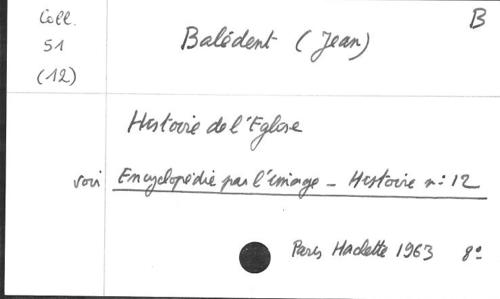 B
Coll.
51
(12)
Balédent (Jean)
Histoire de l'Eglise
voir Encyclopédie par l'image - Histoire n: 12
Paris Hachette 1963 8°